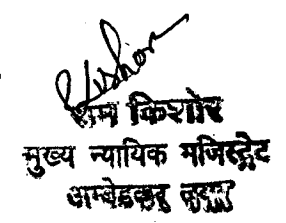 Kishor
राम किशोर
मुख्य न्यायिक मजिस्ट्रेट
अम्बेडकर नगर